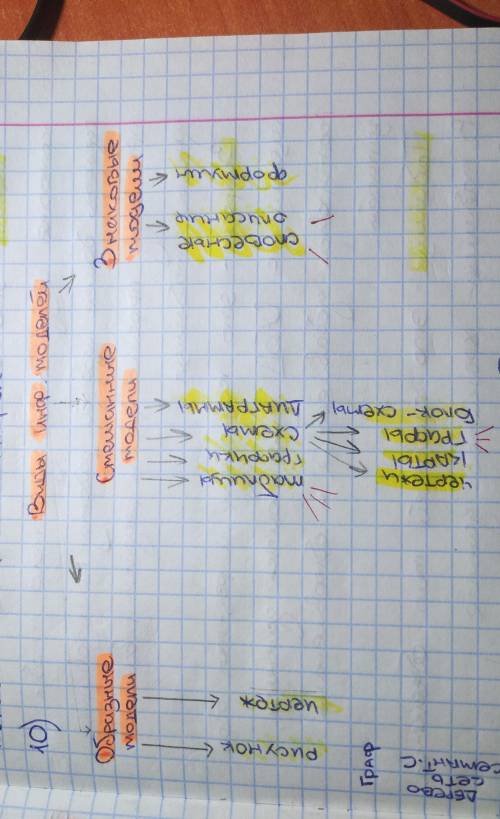 10)
Виды инф. моделей
Образные
модели
рисунок
чертож
Смешанные
модели
таблицы
графики
схемы
диаграммы
чертежи
карты
графы
блок-схемы
Знаковые
модели
словесные
описание
формулы
Граф
дерево
сеть
семант. с